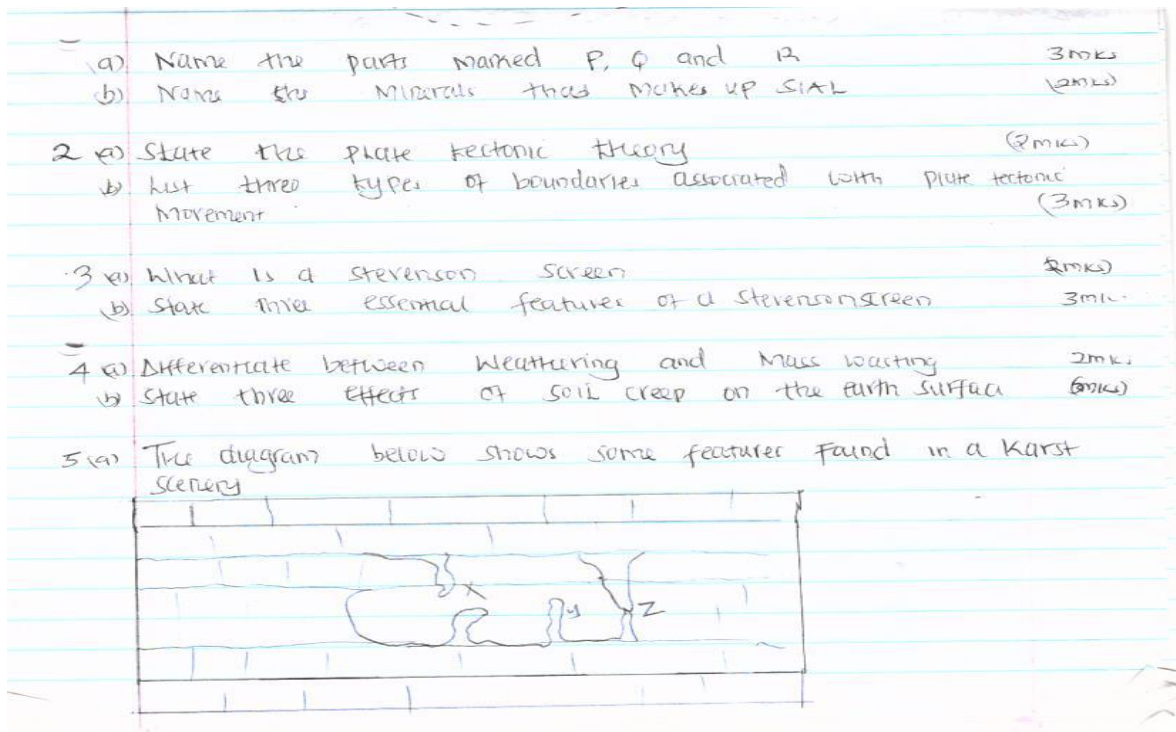 a) Name the parts marked P, Q and R 3mks
b) Name the Minerals that makes up SIAL (2mks)
2 a) State the plate tectonic theory (2mks)
b) List three types of boundaries associated with plate tectonic
Movement (3mks)
3 a) What is a stevenson screen (2mks)
b) State three essential features of a stevenson screen 3mk.
4 a) Differentiate between Weathering and Mass wasting 2mk.
b) State three effects of soil creep on the earth surface (3mks)
5 (a) The diagram below shows some features Found in a Karst
scenery
X
Y
Z